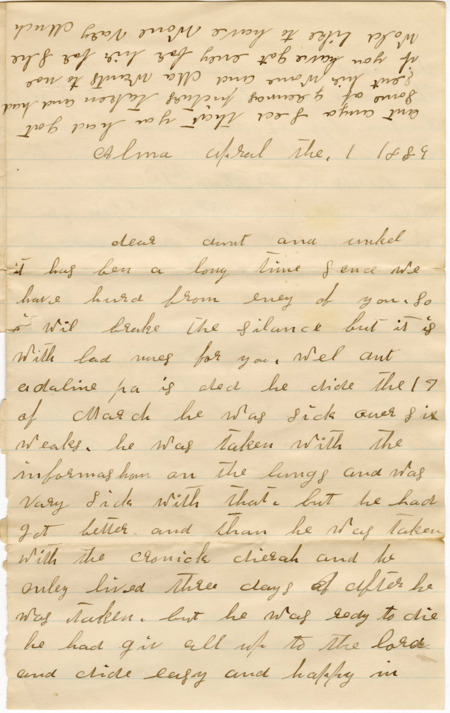 Alma apral the, 1 1889
dear aunt and unkel
it has ben a long time sence we
have hurd from eney of you. so
i wil brake the silance but it is
with bad nues for you. wel ant
adaline pa is ded he dide the 17
of March he was sick over six
weaks. he was taken with the
informashun on the lungs and was
vary sick with that. but he had
got better and than he was taken
with the cronick dierah and he
onley lived three days after he
was taken. but he was redy to die
he had giv all up to the lord
and dide easy and happy in
ant anga sed that you had got
some of granmas pictures taken and had
sent hir wone and Ma wants to noe
if you have got eney for hir for she
wold like to have wone vary much